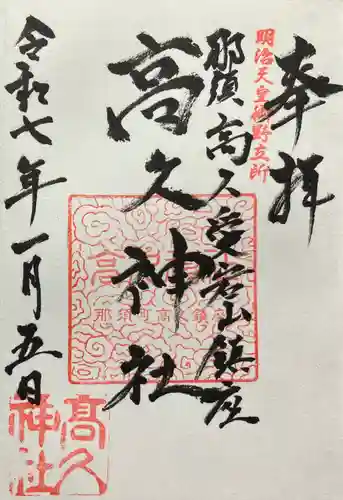 奉拝
明治天皇御野立所
那須高久愛宕山鎮座
高久神社
那須町高久鎮座
令和七年一月五日
高久
神社